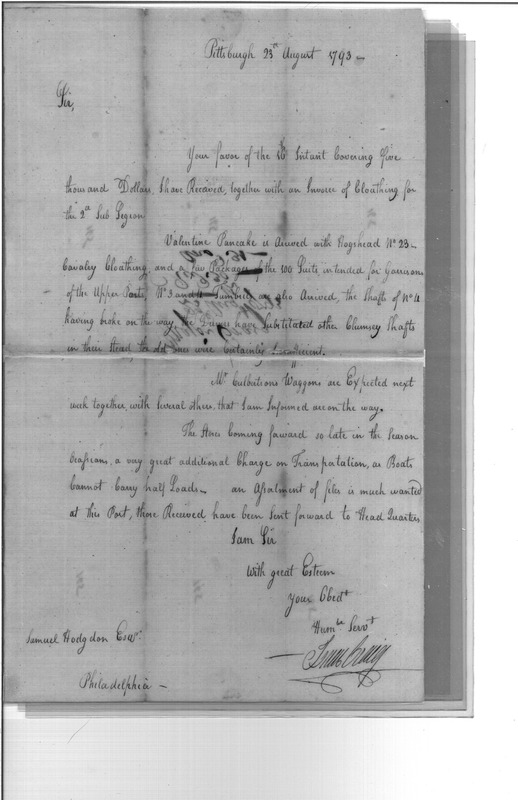 Pittsburgh 23d August 1793 —
Sir,
Your favor of the 16th Instant Covering five
thousand Dollars I have Received, together with an Invoice of Cloathing for
the 2d Sub Legion
Valentine Pancake is Arrived with Hogshead No 23 —
Cavalry Cloathing and a few Packages of the 100 Suits intended for Garrisons
of the Upper Posts, No 3 and are also Arrived, the Shafts of No
having broke on the way the Drivers have Substituted other Clumsey Shafts
in their Stead, the old ones were Certainly
Mr Culbertsons Waggons are Expected next
week together, with Several others, that I am Informed are on the way.
The Stores Coming forward so late in the Season
Ocasions, a very great additional Charge on Transportation, as Boats
Cannot Carry half Loads — an of files is much wanted
at this Post, those Received have been Sent forward to Head Quarters
I am Sir
With great Esteem
Your Obedt
Humble Servt
Isaac Craig
Samuel Hodgdon Esqr.
Philadelphia —